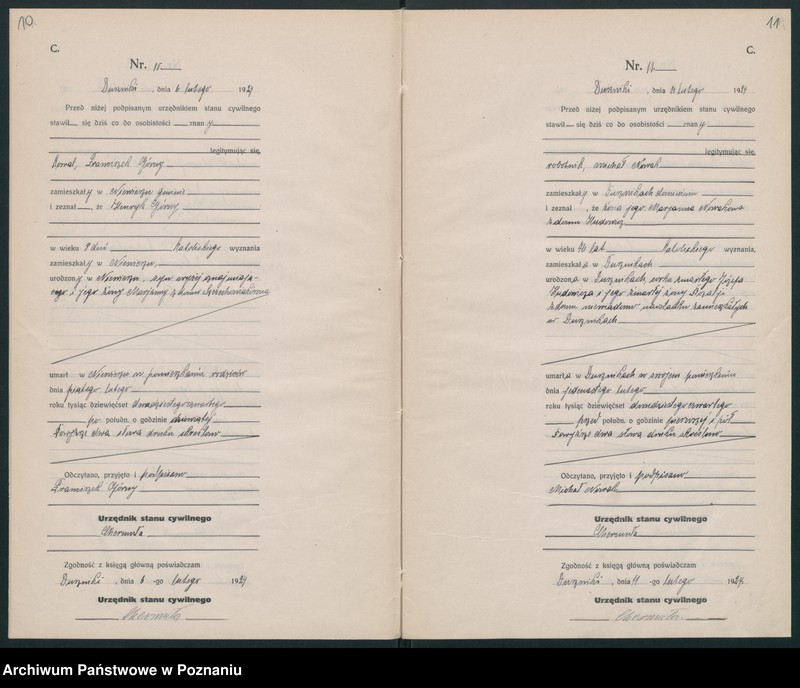 10.
C.
Nr. 11
Duszniki, dnia 6 lutego 1924
Przed niżej podpisanym urzędnikiem stanu cywilnego
stawił się dziś co do osobistości znany
legitymując się,
kowal, Franciszek Górny
zamieszkały w Niewierzu gminie
i zeznał, że Henryk Górny
w wieku 9 dni katolickiego wyznania
zamieszkały w Niewierzu
urodzony w Niewierzu, syn wyżej oznajmiają-
cego i jego żony Marjanny z domu
umarł w Niewierzu w pomieszkaniu rodziców
dnia piątego lutego
roku tysiąc dziewięćset dwudziestego czwartego
po połudn. o godzinie dziewiątej
Powyższe dwa słowa druku skreślono
Odczytano, przyjęto i podpisano
Franciszek Górny
Urzędnik stanu cywilnego
Zgodność z księgą główną poświadczam
Duszniki, dnia 6-go lutego 1924
Urzędnik stanu cywilnego
11.
C.
Nr. 12
Duszniki, dnia 11 lutego 1924
Przed niżej podpisanym urzędnikiem stanu cywilnego
stawił się dziś co do osobistości znany
legitymując się,
robotnik, Michał Nowak
zamieszkały w Dusznikach dominium
i zeznał, że żona jego Marjanna Nowakowa
z domu
w wieku lat katolickiego wyznania,
zamieszkała w Dusznikach
urodzona w Dusznikach, córka zmarłego Józefa
i jego zmarłej żony Rozalji
z domu niewiadomo, zamieszkałych
w Dusznikach
umarła w Dusznikach w swojem pomieszkaniu
dnia jedenastego lutego
roku tysiąc dziewięćset dwudziestego czwartego
przed połudn. o godzinie pierwszej i pół
Powyższe dwa słowa druku skreślono
Odczytano, przyjęto i podpisano
Michał Nowak
Urzędnik stanu cywilnego
Zgodność z księgą główną poświadczam
Duszniki, dnia 11-go lutego 1924
Urzędnik stanu cywilnego
Archiwum Państwowe w Poznaniu